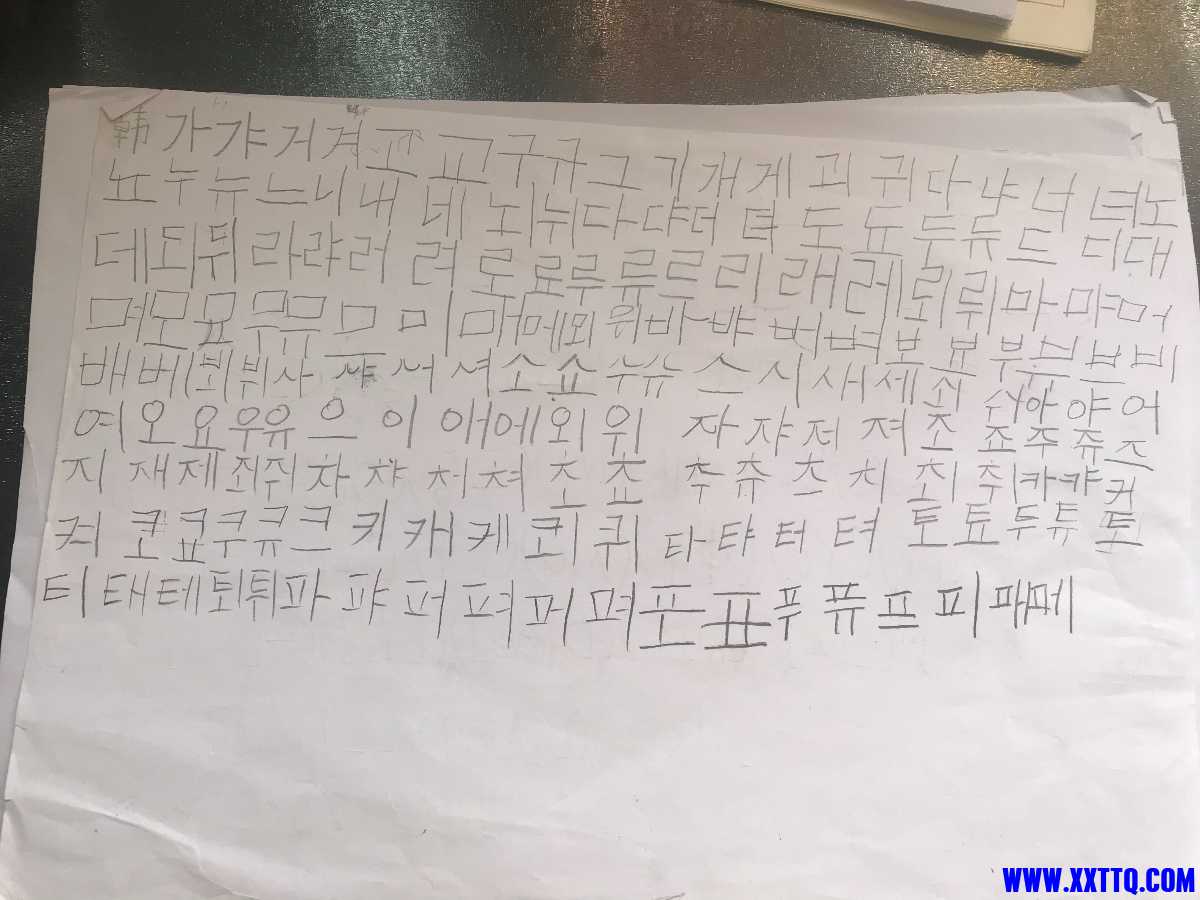 韩 가 갸 거 겨 고 교 구 규 그 기 개 게 괴 귀 다 냐 너 녀 노
뇨 누 뉴 느 니 내 네 뇌 뉘 다 댜 더 뎌 도 됴 두 듀 드 디 대
데 되 뒤 라 랴 러 려 로 료 루 류 르 리 래 레 뢰 뤼 마 먀 머
며 모 묘 무 뮤 므 미 매 메 뫼 뮈 바 뱌 버 벼 보 뵤 부 뷰 브 비
배 베 뵈 뷔 사 샤 서 셔 소 쇼 수 슈 스 시 새 세 쇠 쉬 아 야 어
여 오 요 우 유 으 이 애 에 외 위 자 쟈 저 져 조 죠 주 쥬 즈
지 재 제 죄 쥐 차 챠 처 쳐 초 쵸 추 츄 츠 치 최 취 카 캬 커
켜 코 쿄 쿠 큐 크 키 캐 케 쾨 퀴 타 탸 터 텨 토 툐 두 튜 토
티 태 테 퇴 튀 파 퍄 퍼 펴 퍼 며 포 표 푸 퓨 프 피 패 페
WWW.XXTTQ.COM